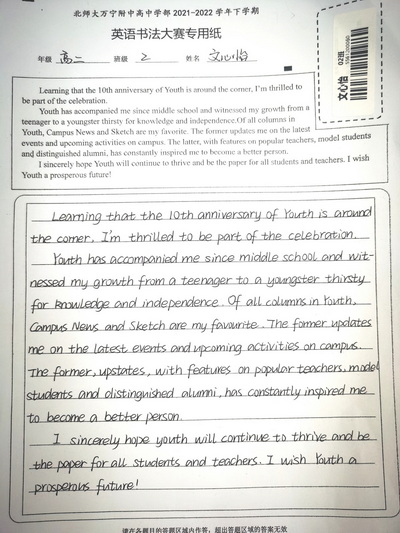 北师大万宁附中高中学部 2021-2022 学年下学期
英语书法大赛专用纸
年级 高二 班级 2 姓名 文心怡
02班
文心怡
Learning that the 10th anniversary of Youth is around the corner, I'm thrilled to
be part of the celebration.
Youth has accompanied me since middle school and witnessed my growth from a
teenager to a youngster thirsty for knowledge and independence.Of all columns in
Youth, Campus News and Sketch are my favorite. The former updates me on the latest
events and upcoming activities on campus. The latter, with features on popular teachers, model students
and distinguished alumni, has constantly inspired me to become a better person.
I sincerely hope Youth will continue to thrive and be the paper for all students and teachers. I wish
Youth a prosperous future!
Learning that the 10th anniversary of Youth is around
the corner, I'm thrilled to be part of the celebration.
Youth has accompanied me since middle school and wit-
nessed my growth from a teenager to a youngster thirsty
for knowledge and independence. Of all columns in Youth,
Campus News and Sketch are my favourite. The former updates
me on the latest events and upcoming activities on campus.
The former, upstates, with features on popular teachers, model
students and distinguished alumni, has constantly inspired me
to become a better person.
I sincerely hope youth will continue to thrive and be
the paper for all students and teachers. I wish Youth a
prosperous future!
请在各题目的答题区域内作答，超出答题区域的答案无效